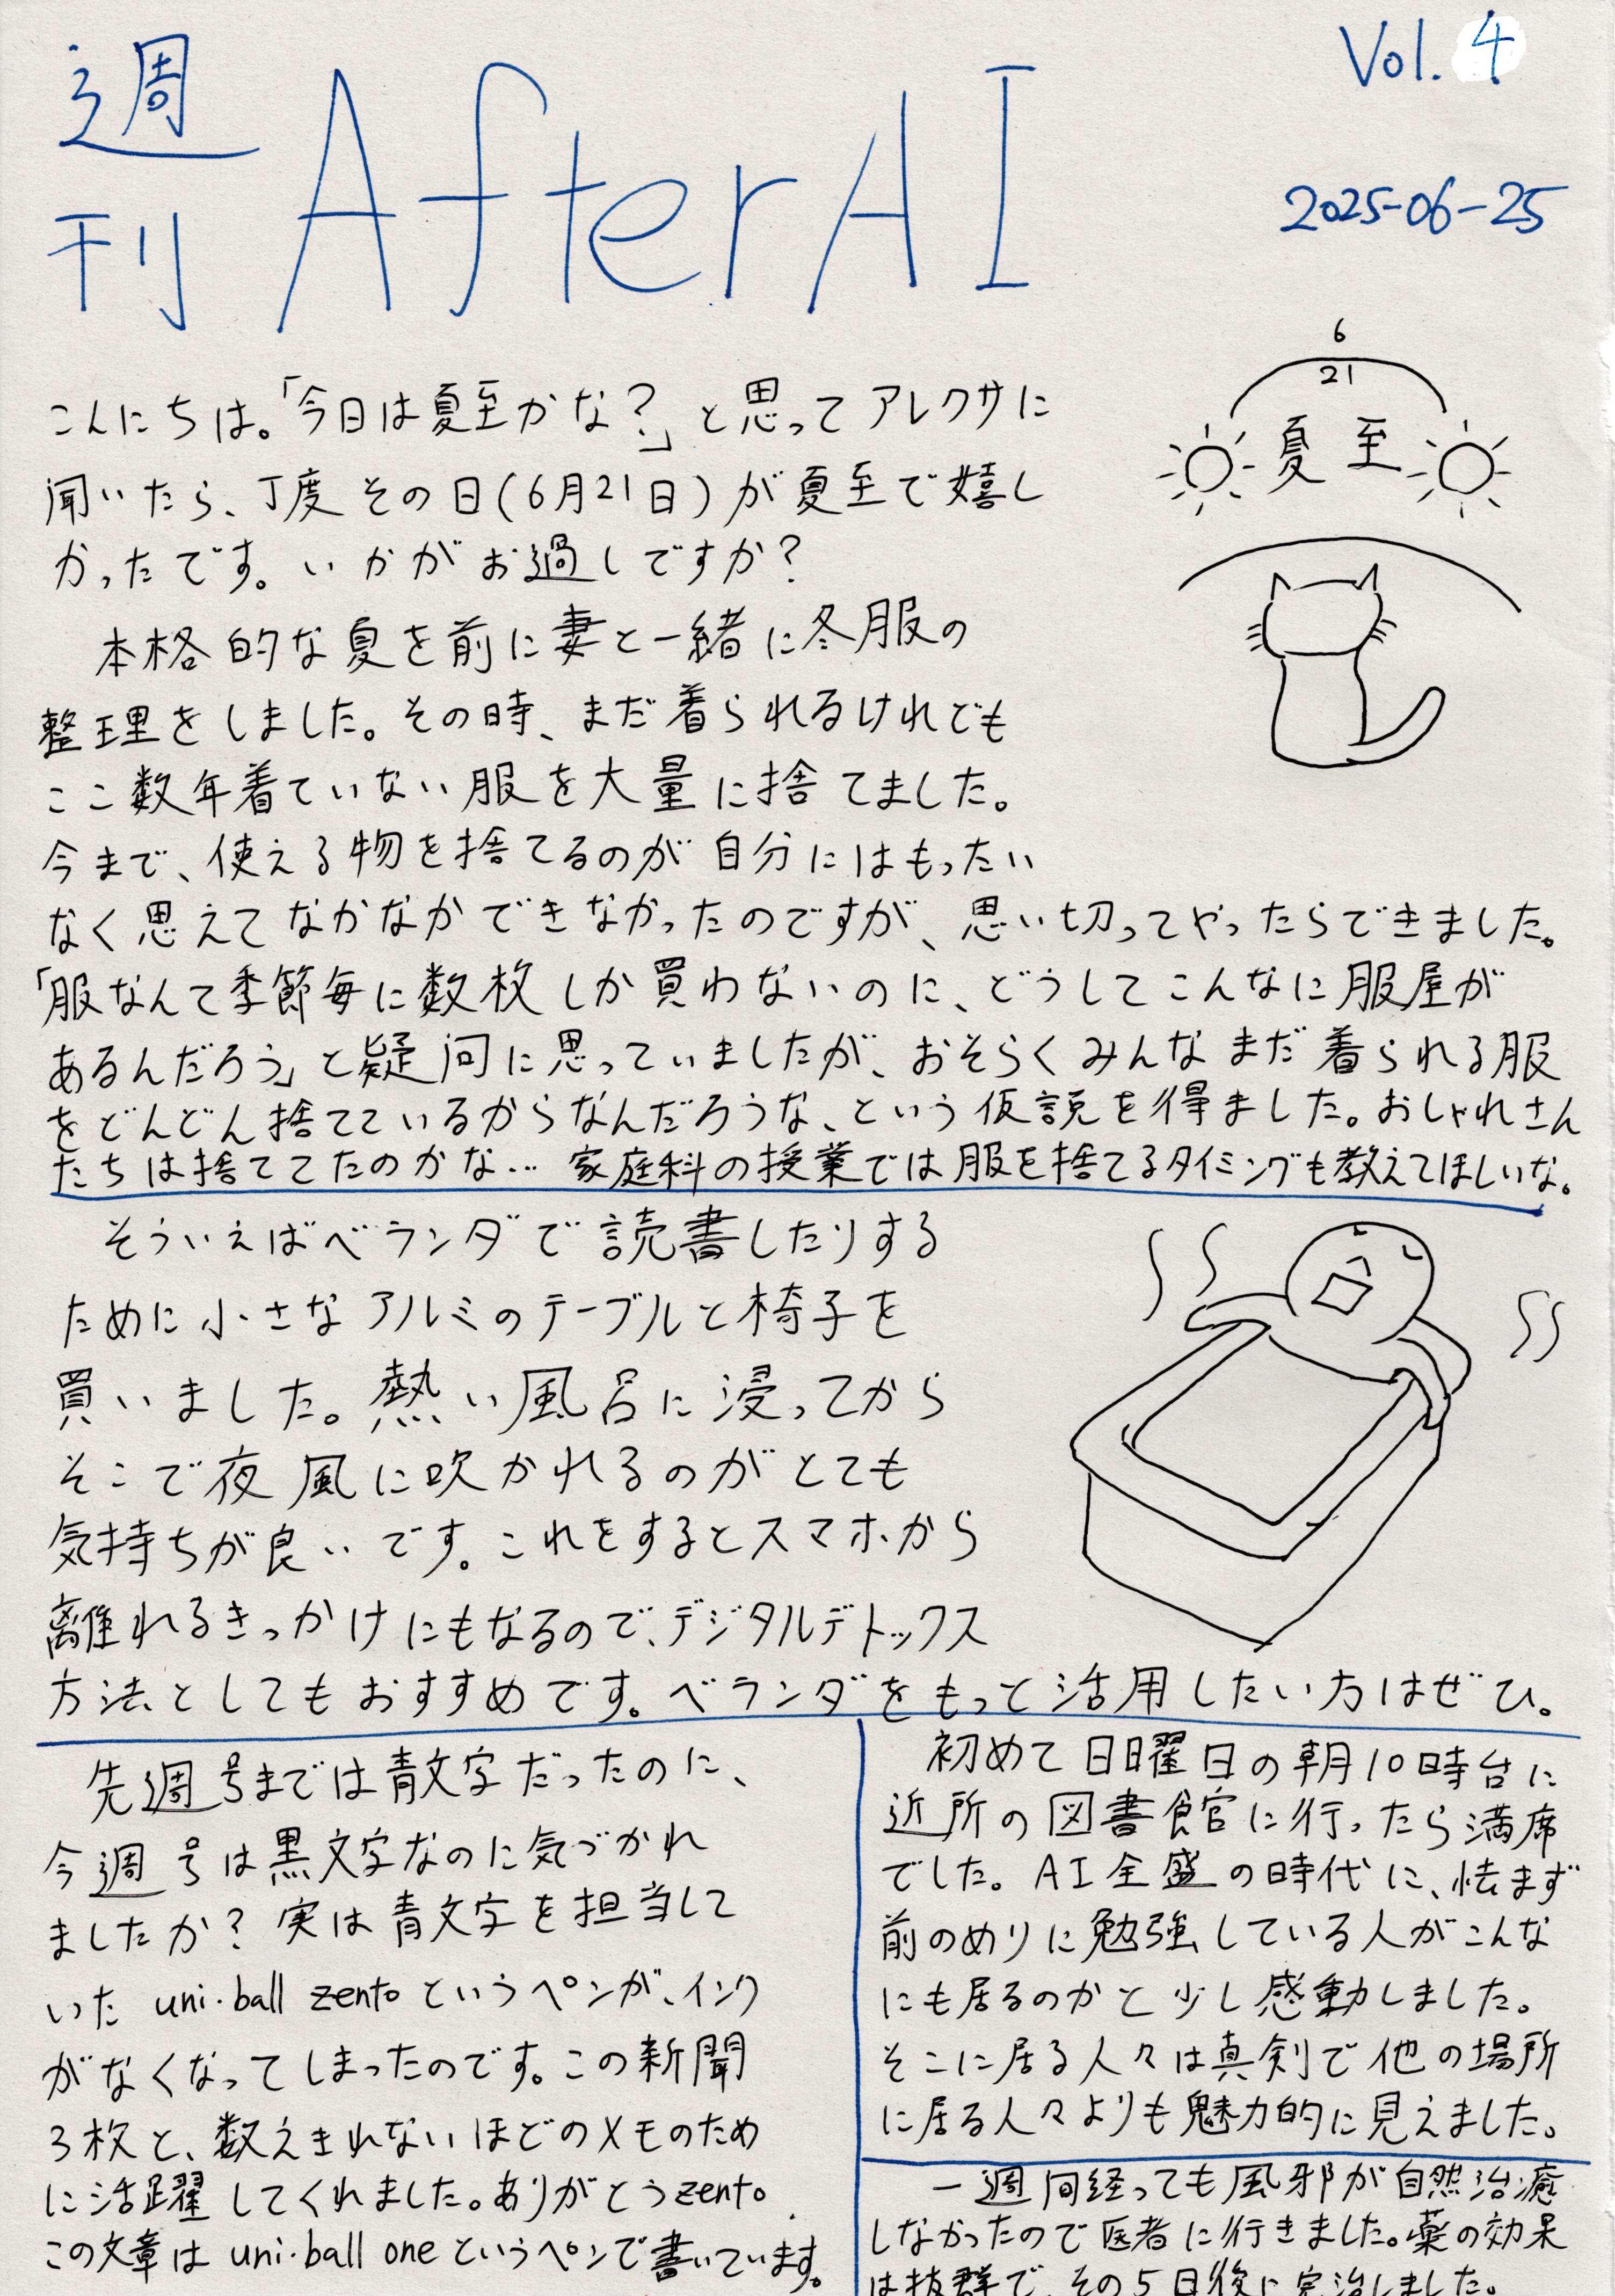 週刊 After AI
Vol. 4
2025-06-25
6
21
夏至
こんにちは。「今日は夏至かな？」と思ってアレクサに
聞いたら、丁度その日(6月21日)が夏至で嬉し
かったです。いかがお過しですか？
本格的な夏を前に妻と一緒に冬服の
整理をしました。その時、まだ着られるけれども
ここ数年着ていない服を大量に捨てました。
今まで、使える物を捨てるのが自分にはもったい
なく思えてなかなかできなかったのですが、思い切ってやったらできました。
「服なんて季節毎に数枚しか買わないのに、どうしてこんなに服屋が
あるんだろう」と疑問に思っていましたが、おそらくみんなまだ着られる服
をどんどん捨てているからなんだろうな、という仮説を得ました。おしゃれさん
たちは捨ててたのかな… 家庭科の授業では服を捨てるタイミングも教えてほしいな。
そういえばベランダで読書したりする
ために小さなアルミのテーブルと椅子を
買いました。熱い風呂に浸ってから
そこで夜風に吹かれるのがとても
気持ちが良いです。これをするとスマホから
離れるきっかけにもなるので、デジタルデトックス
方法としてもおすすめです。ベランダをもっと活用したい方はぜひ。
先週号までは青文字だったのに、
今週号は黒文字なのに気づかれ
ましたか？実は青文字を担当して
いた uni・ball zentoというペンが、インク
がなくなってしまったのです。この新聞
3枚と、数えきれないほどのメモのため
に活躍してくれました。ありがとうzento。
この文章は uni・ball one というペンで書いています。
初めて日曜日の朝10時台に
近所の図書館に行ったら満席
でした。AI全盛の時代に、怯まず
前のめりに勉強している人がこんな
にも居るのかと少し感動しました。
そこに居る人々は真剣で他の場所
に居る人々よりも魅力的に見えました。
一週間経っても風邪が自然治癒
しなかったので医者に行きました。薬の効果
は抜群で、その5日後に完治しました。